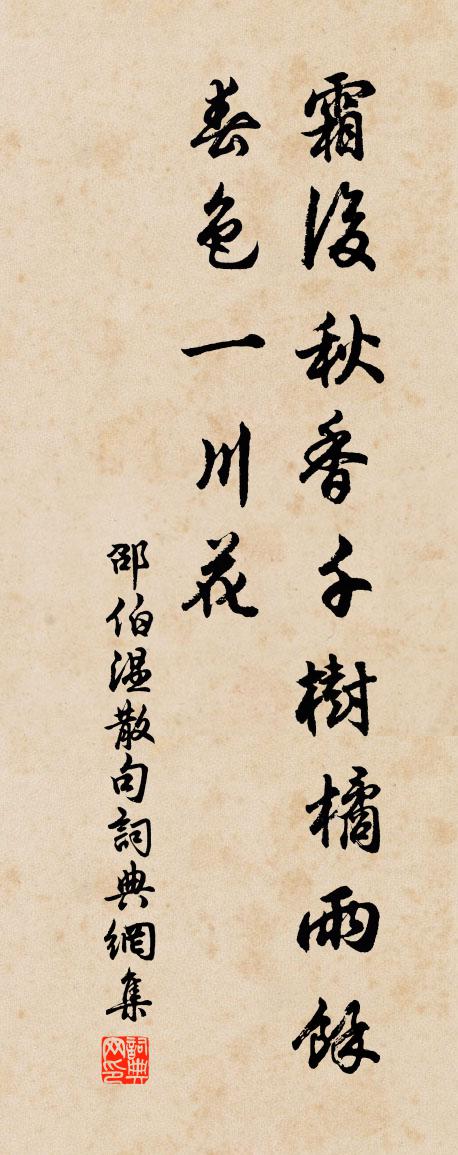 霜後秋香千樹橘雨餘
春色一川花
邵伯溫散句詞典網集
詞典網印